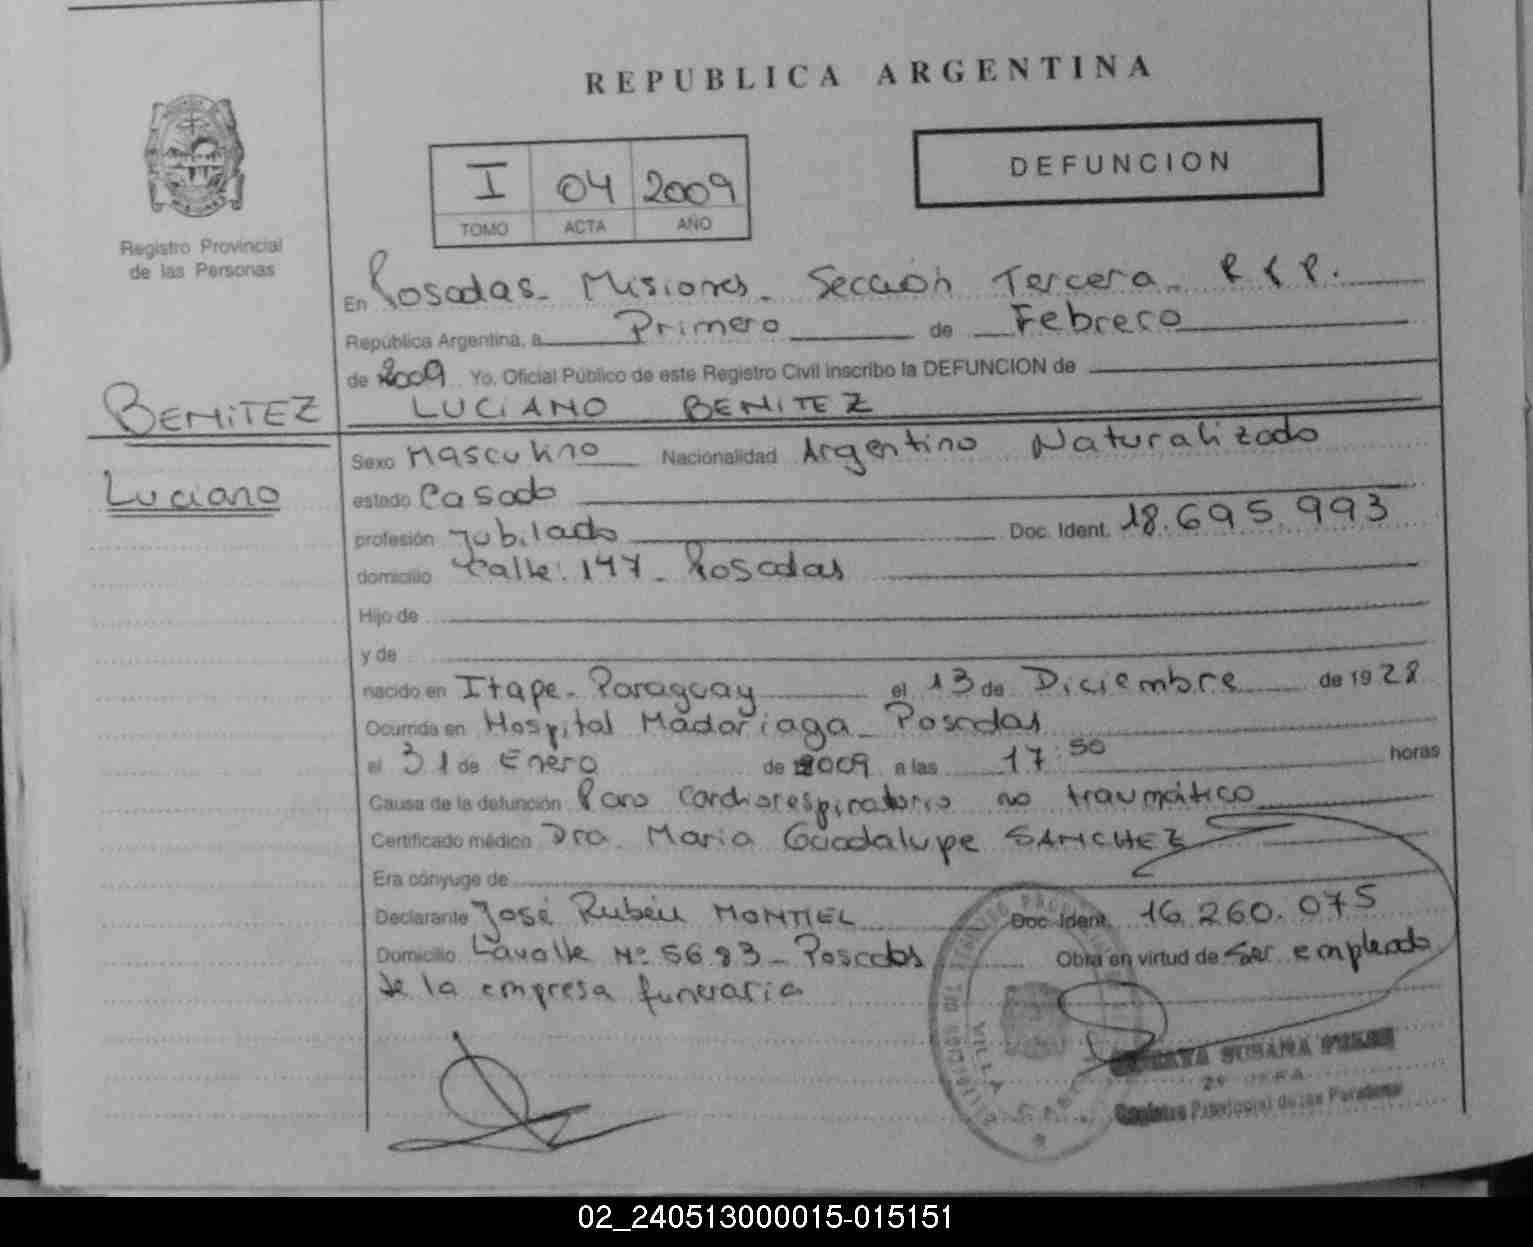 REPUBLICA ARGENTINA
Registro Provincial
de las Personas
I 04 2009
TOMO ACTA AÑO
DEFUNCION
En Posadas - Misiones - Sección Tercera - R.P.
República Argentina, a Primero de Febrero
de 2009 Yo, Oficial Público de este Registro Civil inscribo la DEFUNCION de
BENITEZ LUCIANO BENITEZ
Luciano
Sexo Masculino Nacionalidad Argentino Naturalizado
estado Casado
profesión Jubilado Doc. Ident. 18.695.993
domicilio Calle: 147 - Posadas
Hijo de
y de
nacido en Itape - Paraguay el 13 de Diciembre de 1928
Ocurrida en Hospital Madariaga - Posadas
el 31 de Enero de 2009 a las 17:50 horas
Causa de la defunción Paro Cardiorespiratorio no traumático
Certificado médico Dra. Maria Guadalupe SANCHEZ
Era cónyuge de
Declarante José Rubén MONTIEL Doc. Ident. 16.260.075
Domicilio Lavalle Nº 5683 - Posadas Obra en virtud de ser empleado
de la empresa funeraria
VILLA
SUSANA
Registro Provincial de las Personas
02_240513000015-015151